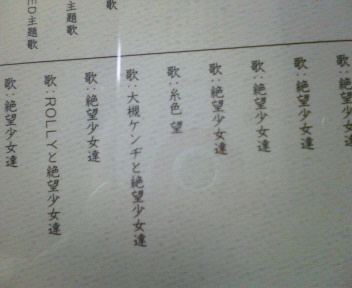 歌
主題歌
ED主題歌
歌：絶望少女達
歌：絶望少女達
歌：絶望少女達
歌：絶望少女達
歌：糸色 望
歌：大槻ケンヂと絶望少女達
歌：絶望少女達
歌：ROLLYと絶望少女達
歌：絶望少女達